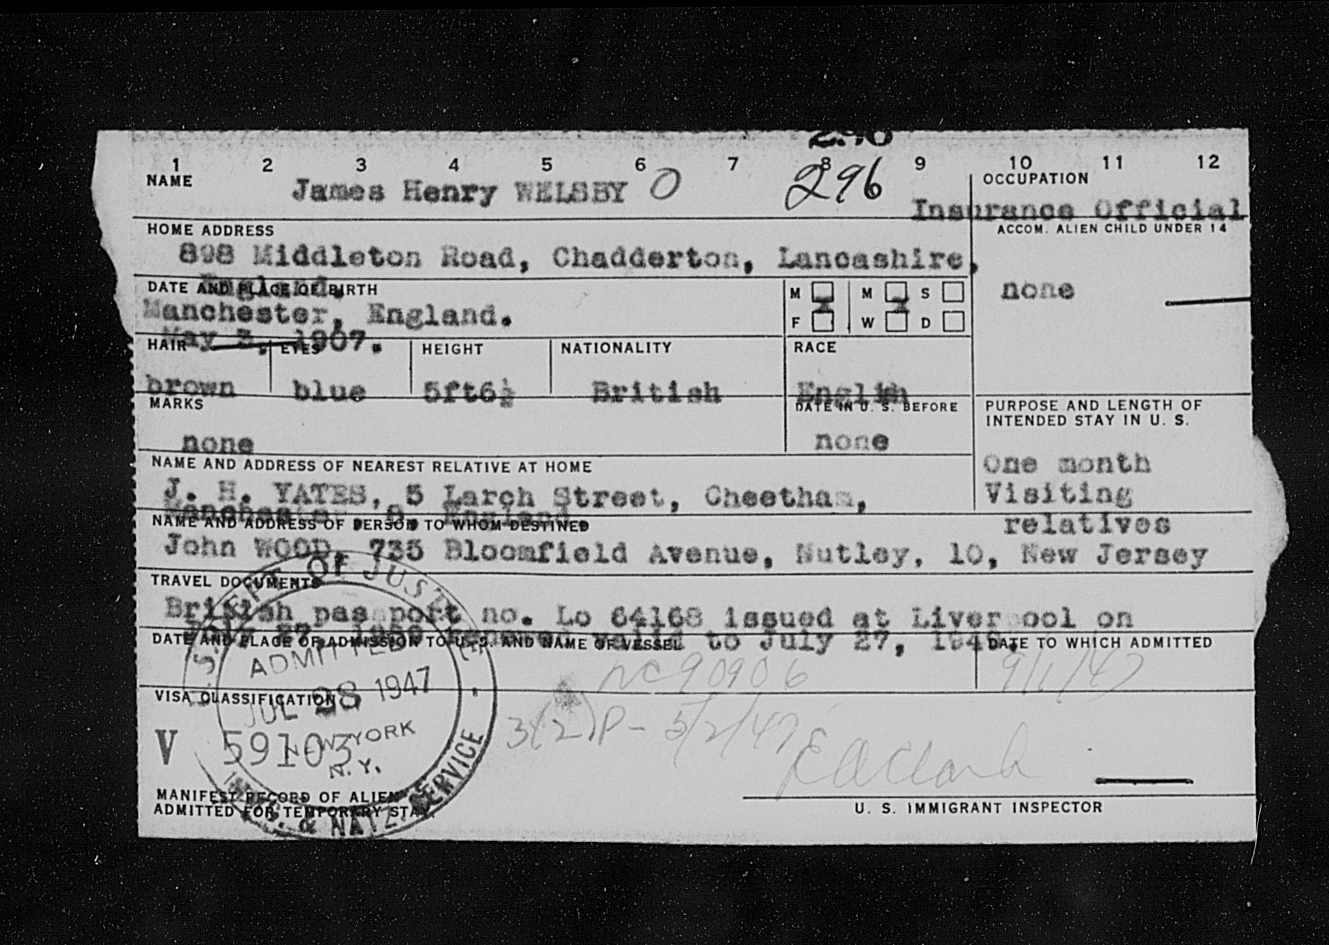 296
1 2 3 4 5 6 7 8 9 10 11 12
NAME James Henry WELSBY O 296 OCCUPATION
Insurance Official
HOME ADDRESS ACCOM. ALIEN CHILD UNDER 14
898 Middleton Road, Chadderton, Lancashire,
England.
DATE AND PLACE OF BIRTH M M S none
Manchester, England. F W D
May 3, 1907.
HAIR EYES HEIGHT NATIONALITY RACE
brown blue 5ft6½ British English
MARKS DATE IN U. S. BEFORE PURPOSE AND LENGTH OF
INTENDED STAY IN U. S.
none none
NAME AND ADDRESS OF NEAREST RELATIVE AT HOME One month
J. H. YATES, 5 Larch Street, Cheetham, Visiting
Manchester 8, England
NAME AND ADDRESS OF PERSON TO WHOM DESTINED relatives
John WOOD, 735 Bloomfield Avenue, Nutley, 10, New Jersey
TRAVEL DOCUMENTS
British passport no. Lo 64168 issued at Liverpool on
valid to July 27, 1948.
DATE AND PLACE OF ADMISSION TO U. S. AND NAME OF VESSEL DATE TO WHICH ADMITTED
NC90906 9/1/47
VISA CLASSIFICATION
3(2)P- 5/2/47
V 59103
OF JUST
ADMITTED
JUL 28 1947
NEW YORK
N. Y.
& NATZ. SERVICE
MANIFEST RECORD OF ALIEN
ADMITTED FOR TEMPORARY STAY
E A Clark
U. S. IMMIGRANT INSPECTOR